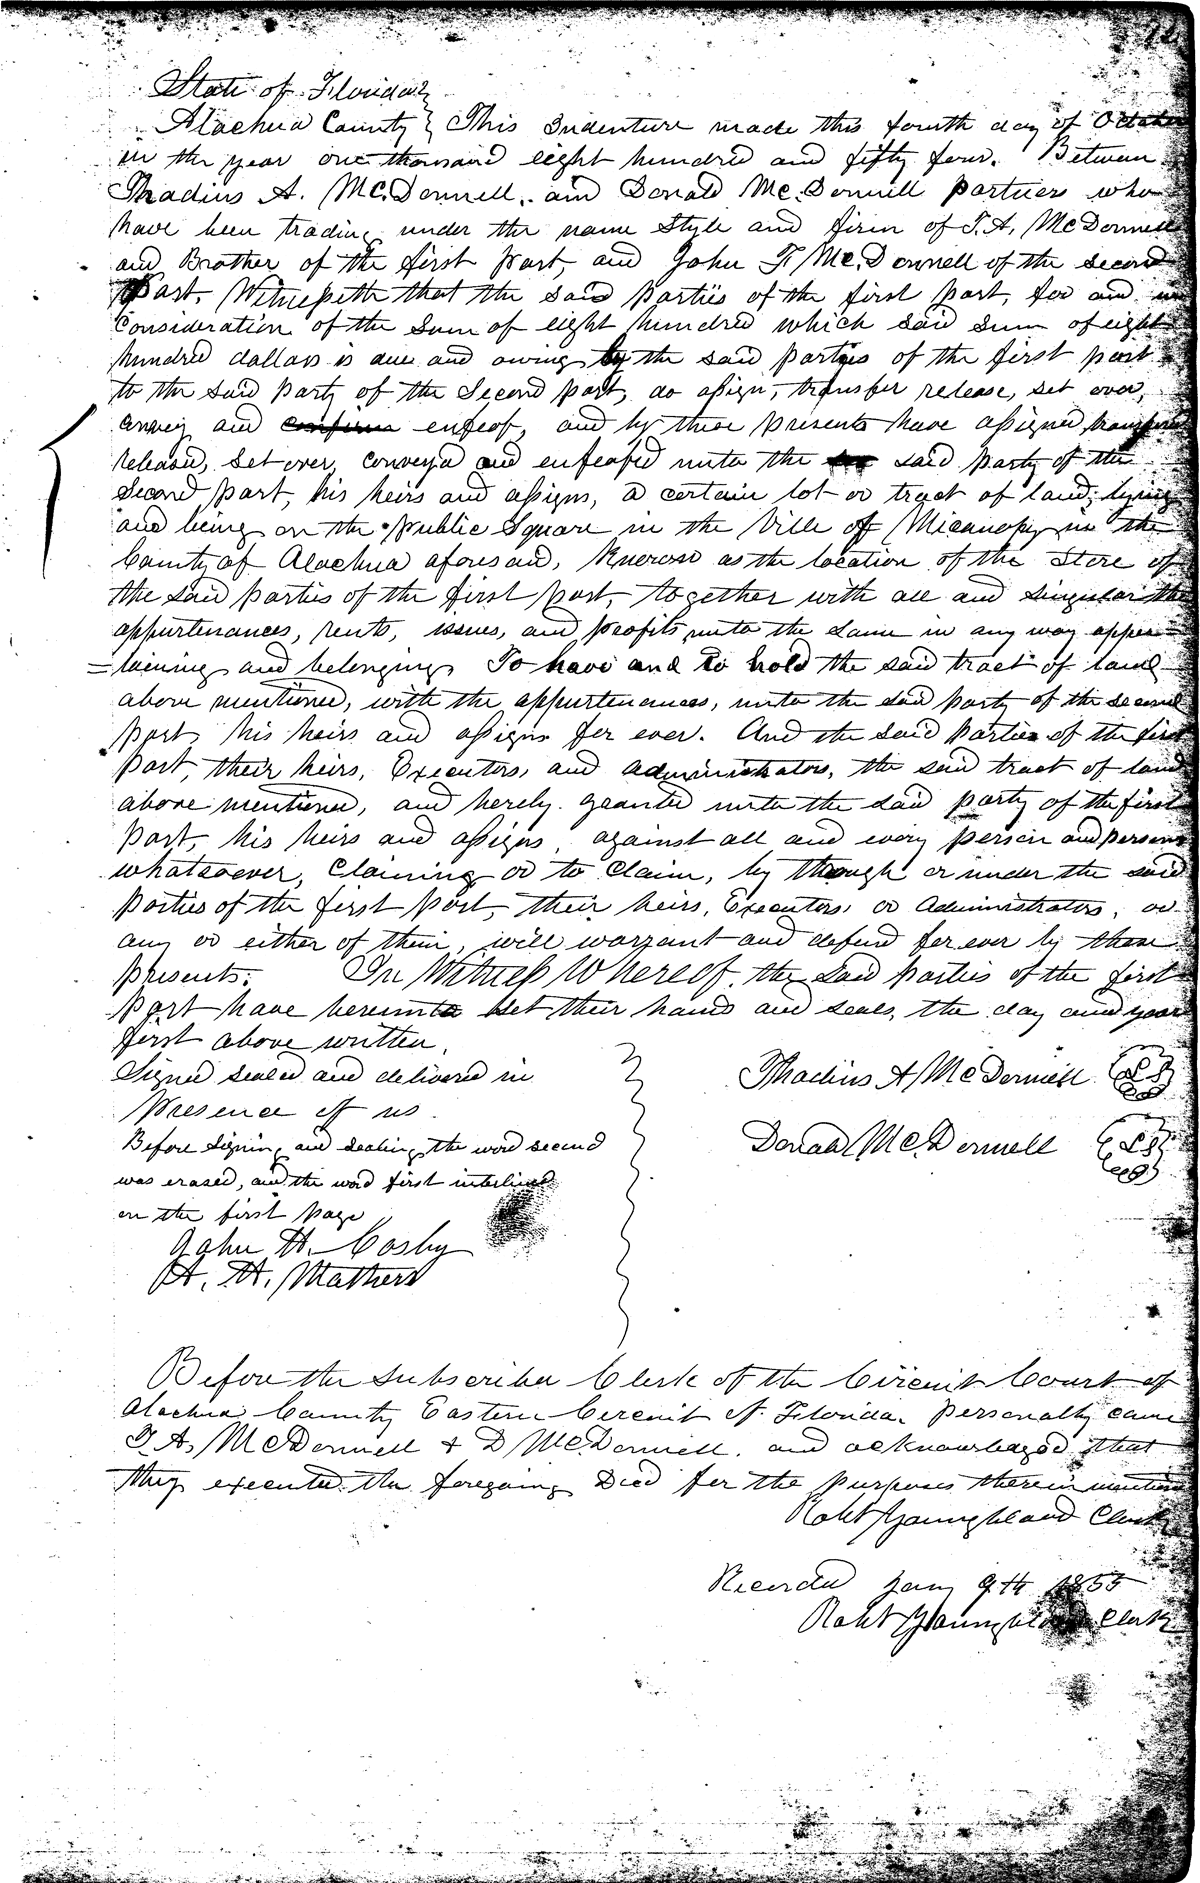 State of Florida }
Alachua County } This Indenture made this fourth day of October
in the year one thousand eight hundred and fifty four. Between
Thadius A. McDonnell, and Donald McDonnell partners who
have been trading under the name Style and firm of T. A. McDonnell
and Brother of the first part, and John F. McDonnell of the second
Part. Witnesseth that the said parties of the first part, for and in
Consideration of the Sum of eight hundred which said sum of eight
hundred dollars is due and owing by the said parties of the first part
to the said party of the Second part, do assign, transfer release, set over,
convey and confirm enfeof, and by these presents have assigned, transfered
released, set over, conveyed and enfeofed unto the said party of the
Second part, his heirs and assigns, a certain lot or tract of land, lying
and being on the Public Square in the Ville of Micanopy in the
County of Alachua aforesaid, Known as the location of the Store of
the said parties of the first part, together with all and singular the
appurtenances, rents, issues, and profits, unto the same in any way apper=
=taining and belonging, To have and to hold the said tract of land
above mentioned, with the appurtenances, unto the said party of the second
part, his heirs and assigns for ever. And the said parties of the first
part, their heirs, Executors, and administrators, the said tract of land
above mentioned, and hereby granted unto the said party of the first
part, his heirs and assigns, against all and every person and persons
whatsoever, Claiming or to Claim, by through or under the said
parties of the first part, their heirs, Executors, or Administrators, or
any or either of them, will warrant and defend for ever by these
presents. In Witness Whereof, the said parties of the first
part have hereunto set their hands and seals, the day and year
first above written.
Signed sealed and delivered in
Presence of us.
Thadius A McDonnell L S
Before signing and sealing, the word second
Donald McDonnell L S
was erased, and the word first interlined
on the first page
John H. Cosby
A. H. Mathers
Before the subscriber Clerk of the Circuit Court of
Alachua County Eastern Circuit of Florida, personally came
T. A. McDonnell & D McDonnell, and acknowledged that
they executed the foregoing Deed for the purposes therein mentioned
Robt Youngblood Clerk
Recorded Jany 9th 1855
Robt Youngblood Clerk